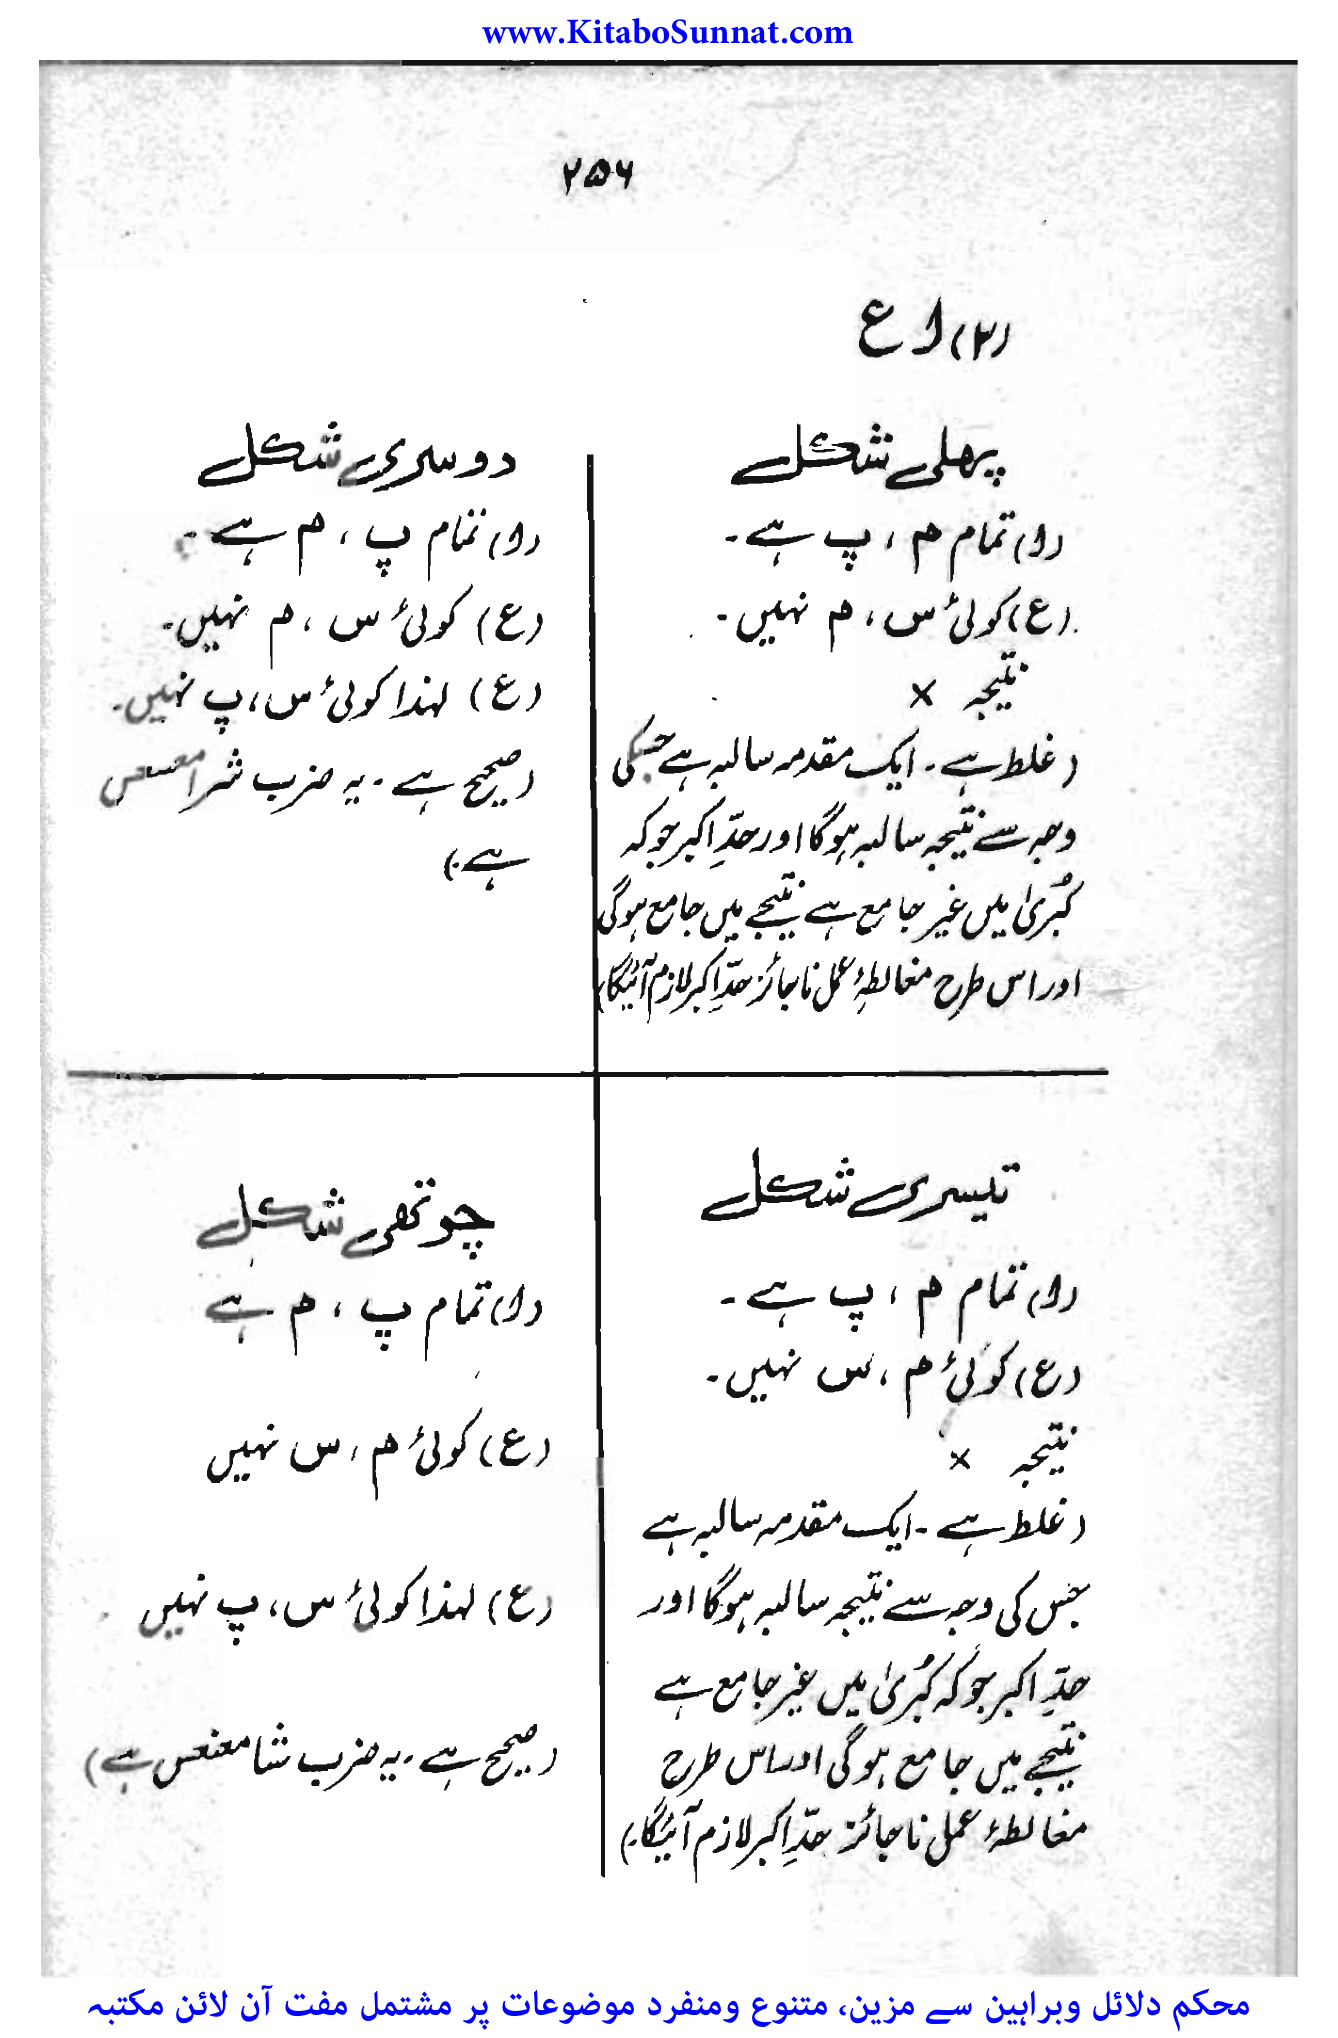 www.KitaboSunnat.com
۲۵۶
(۲) ا ع
پہلی شکل
(ا) تمام م ، پ ہے۔
(ع) کوئی س ، م نہیں۔
نتیجہ ×
(غلط ہے۔ ایک مقدمہ سالبہ ہے جسکی
وجہ سے نتیجہ سالبہ ہوگا اور حدِّ اکبر جو کہ
کُبریٰ میں غیر جامع ہے نتیجے میں جامع ہوگی
اور اس طرح مغالطۂ عمل ناجائز حدِّ اکبر لازم آئیگا)
دوسری شکل
(ا) تمام پ ، م ہے۔
(ع) کوئی س ، م نہیں۔
(ع) لہٰذا کوئی س، پ نہیں۔
(صحیح ہے۔ یہ ضرب شرامعسعس
ہے۔)
تیسری شکل
(ا) تمام م ، پ ہے۔
(ع) کوئی م ، س نہیں۔
نتیجہ ×
(غلط ہے۔ ایک مقدمہ سالبہ ہے
جس کی وجہ سے نتیجہ سالبہ ہوگا اور
حدِّ اکبر جو کہ کُبریٰ میں غیر جامع ہے
نتیجے میں جامع ہوگی اور اس طرح
مغالطۂ عمل ناجائز حدِّ اکبر لازم آئیگا۔)
چوتھی شکل
(ا) تمام پ ، م ہے
(ع) کوئی م ، س نہیں
(ع) لہٰذا کوئی س، پ نہیں
(صحیح ہے۔ یہ ضرب شامعنعس ہے)
محکم دلائل وبراہین سے مزین، متنوع ومنفرد موضوعات پر مشتمل مفت آن لائن مکتبہ